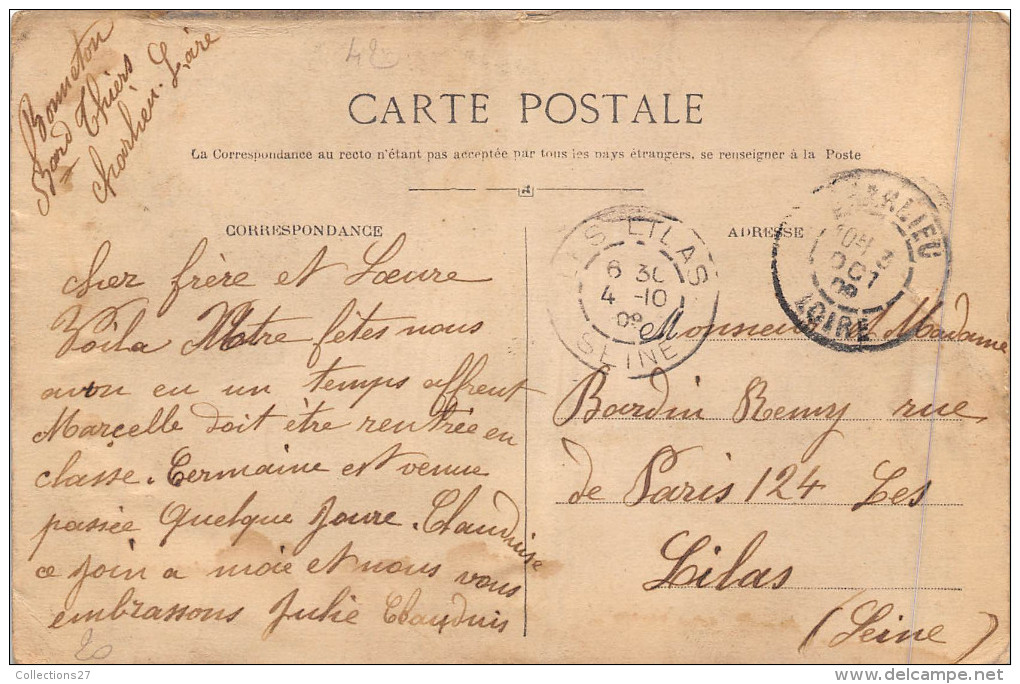 Bonneton
Bard Thiers
Charlieu. Loire
42
CARTE POSTALE
La Correspondance au recto n'étant pas acceptée par tous les pays étrangers, se renseigner à la Poste
CORRESPONDANCE
ADRESSE
cher frère et Soeure
Voila Notre fêtes nous
avon eu un temps affreut
Marcelle doit être rentrée en
classe. Germaine est venue
passée quelque Joure. Clauduise
ce join a moie et nous vous
embrassons Julie Claudius
LES LILAS
6 30
4 -10
09
SEINE
CHARLIEU
10H 3
OCT
09
LOIRE
Monsieur et Madame
Bardin Remy rue
de Paris 124 Les
Lilas
(Seine)
Collections27
delcampe.net